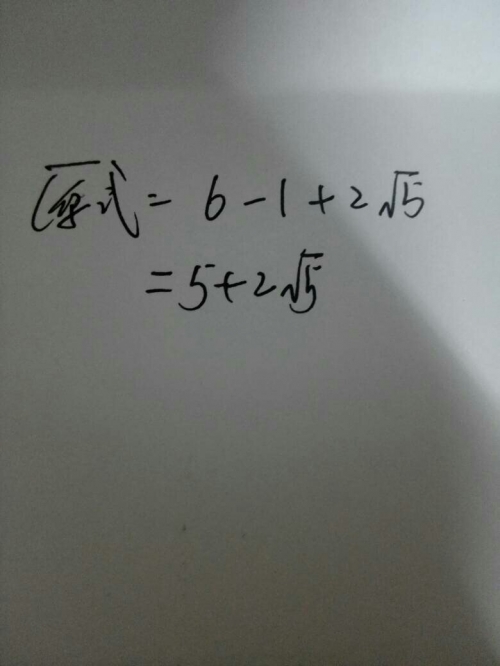 原式 = 6 - 1 + 2√5
= 5 + 2√5